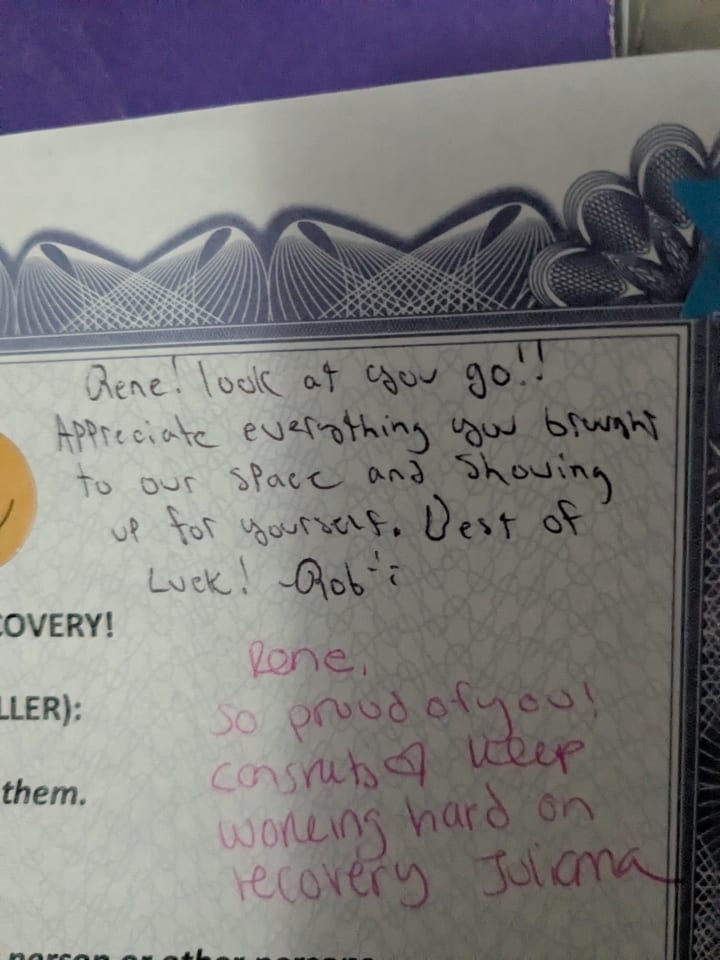 Rene! look at you go!!
Appreciate everything you brought
to our space and showing
up for yourself. Best of
Luck! -Rob
COVERY!
Rene,
LLER):
so proud of you!
congrats ♡ keep
them.
working hard on
recovery Juliana
person or other persons